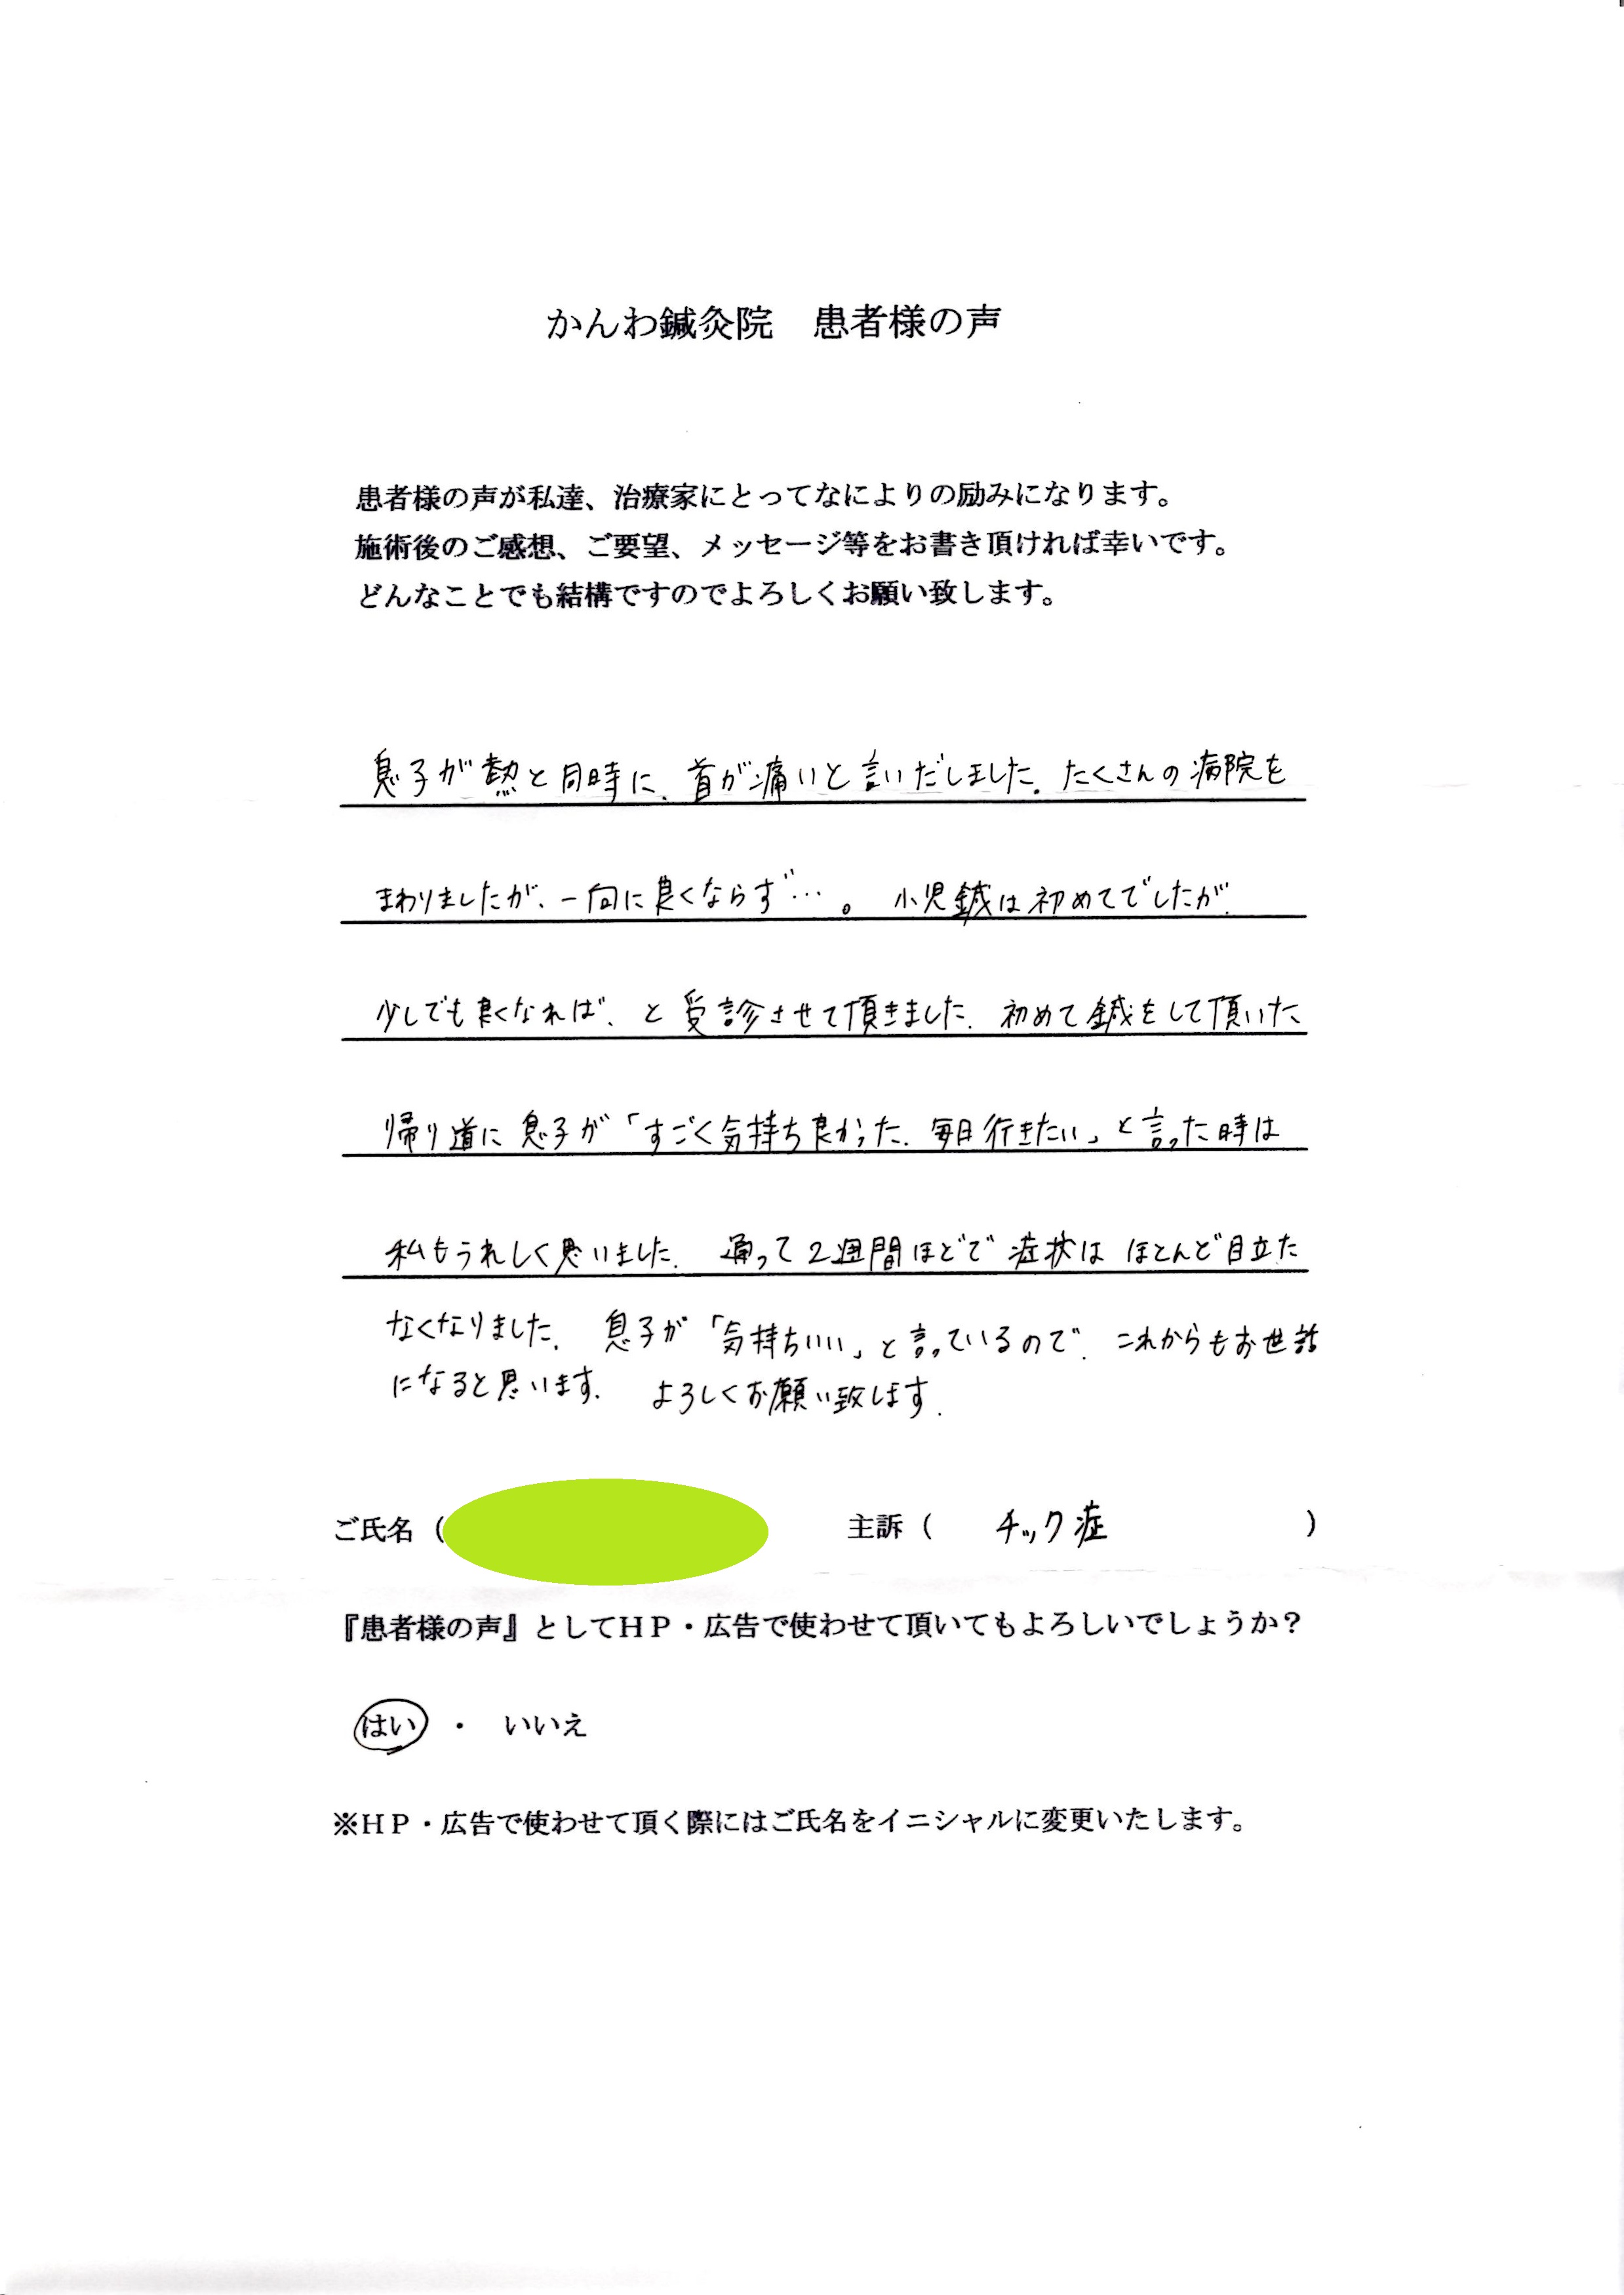 かんわ鍼灸院　患者様の声
患者様の声が私達、治療家にとってなによりの励みになります。
施術後のご感想、ご要望、メッセージ等をお書き頂ければ幸いです。
どんなことでも結構ですのでよろしくお願い致します。
息子が熱と同時に、首が痛いと言いだしました。たくさんの病院を
まわりましたが、一向に良くならず…。 小児鍼は初めてでしたが、
少しでも良くなれば、と受診させて頂きました。初めて鍼をして頂いた
帰り道に息子が「すごく気持ち良かった。毎日行きたい」と言った時は
私もうれしく思いました。 通って2週間ほどで症状はほとんど目立た
なくなりました。 息子が「気持ちいい」と言っているので、これからもお世話
になると思います。 よろしくお願い致します。
ご氏名（ 主訴（ チック症 ）
『患者様の声』としてＨＰ・広告で使わせて頂いてもよろしいでしょうか？
はい ・ いいえ
※ＨＰ・広告で使わせて頂く際にはご氏名をイニシャルに変更いたします。